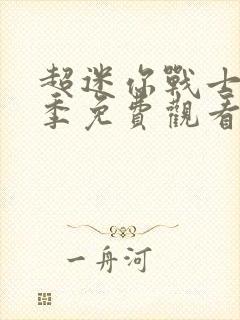 超迷你戰士
季免費觀看
一舟河